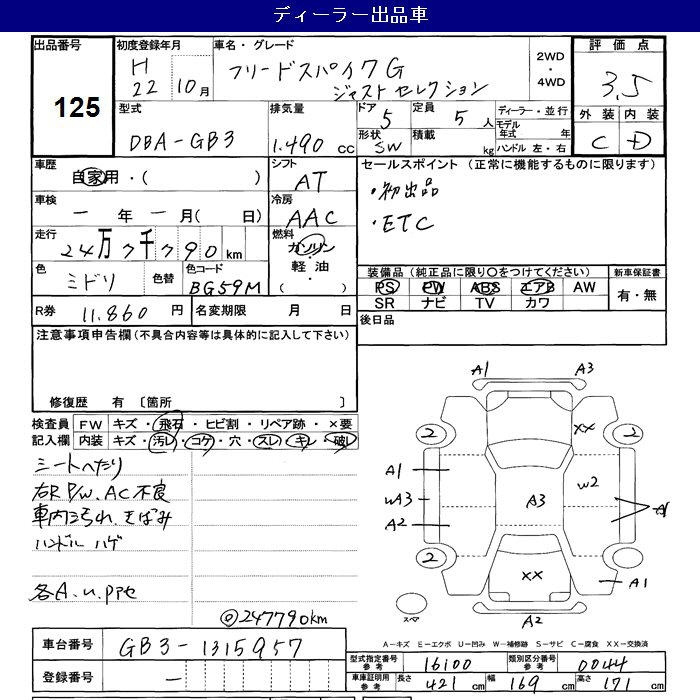 ディーラー出品車
出品番号 初度登録年月 車名・グレード 評価点
125
H 22 10月
フリードスパイク G
ジャストセレクション
2WD
・
4WD
3.5
型式 排気量 ドア 定員 ディーラー・並行 外装 内装
DBA-GB3 1.490 cc 5 5人 モデル年式 年
形状 SW 積載 kg ハンドル 左・右 C D
車歴 シフト セールスポイント (正常に機能するものに限ります)
自家用・( ) AT
・初出品
車検 冷房
ー 年 ー 月( 日) AAC
・ETC
走行 燃料
24万7千790km ガソリン・軽油・( )
色 色替 色コード 装備品(純正品に限り○をつけてください) 新車保証書
ミドリ BG59M
PS PW ABS エアB AW 有・無
SR ナビ TV カワ
R券 11.860円 名変期限 月 日
後日品
注意事項申告欄(不具合内容等は具体的に記入して下さい)
修復歴 有〔箇所 〕
検査員 FW キズ・飛石・ヒビ割・リペア跡・×要
記入欄 内装 キズ・汚レ・コゲ・穴・スレ・キレ・破レ
シートへたり
右R P/W、AC不良
車内汚れ、きばみ
ハンドル ハゲ
各A.u.
◎247790km
A1 A3
2 XX 2
A1
W2
WA3 A3
A2
2
XX
A1
スペア A2
A-キズ E-エクボ U-凹み W-補修跡 S-サビ C-腐食 XX-交換済
車台番号 GB3-1315957
登録番号 ー
型式指定番号 参考 16100 類別区分番号 参考 0044
車庫証明用 参考 長さ 421cm 幅 169cm 高さ 171cm